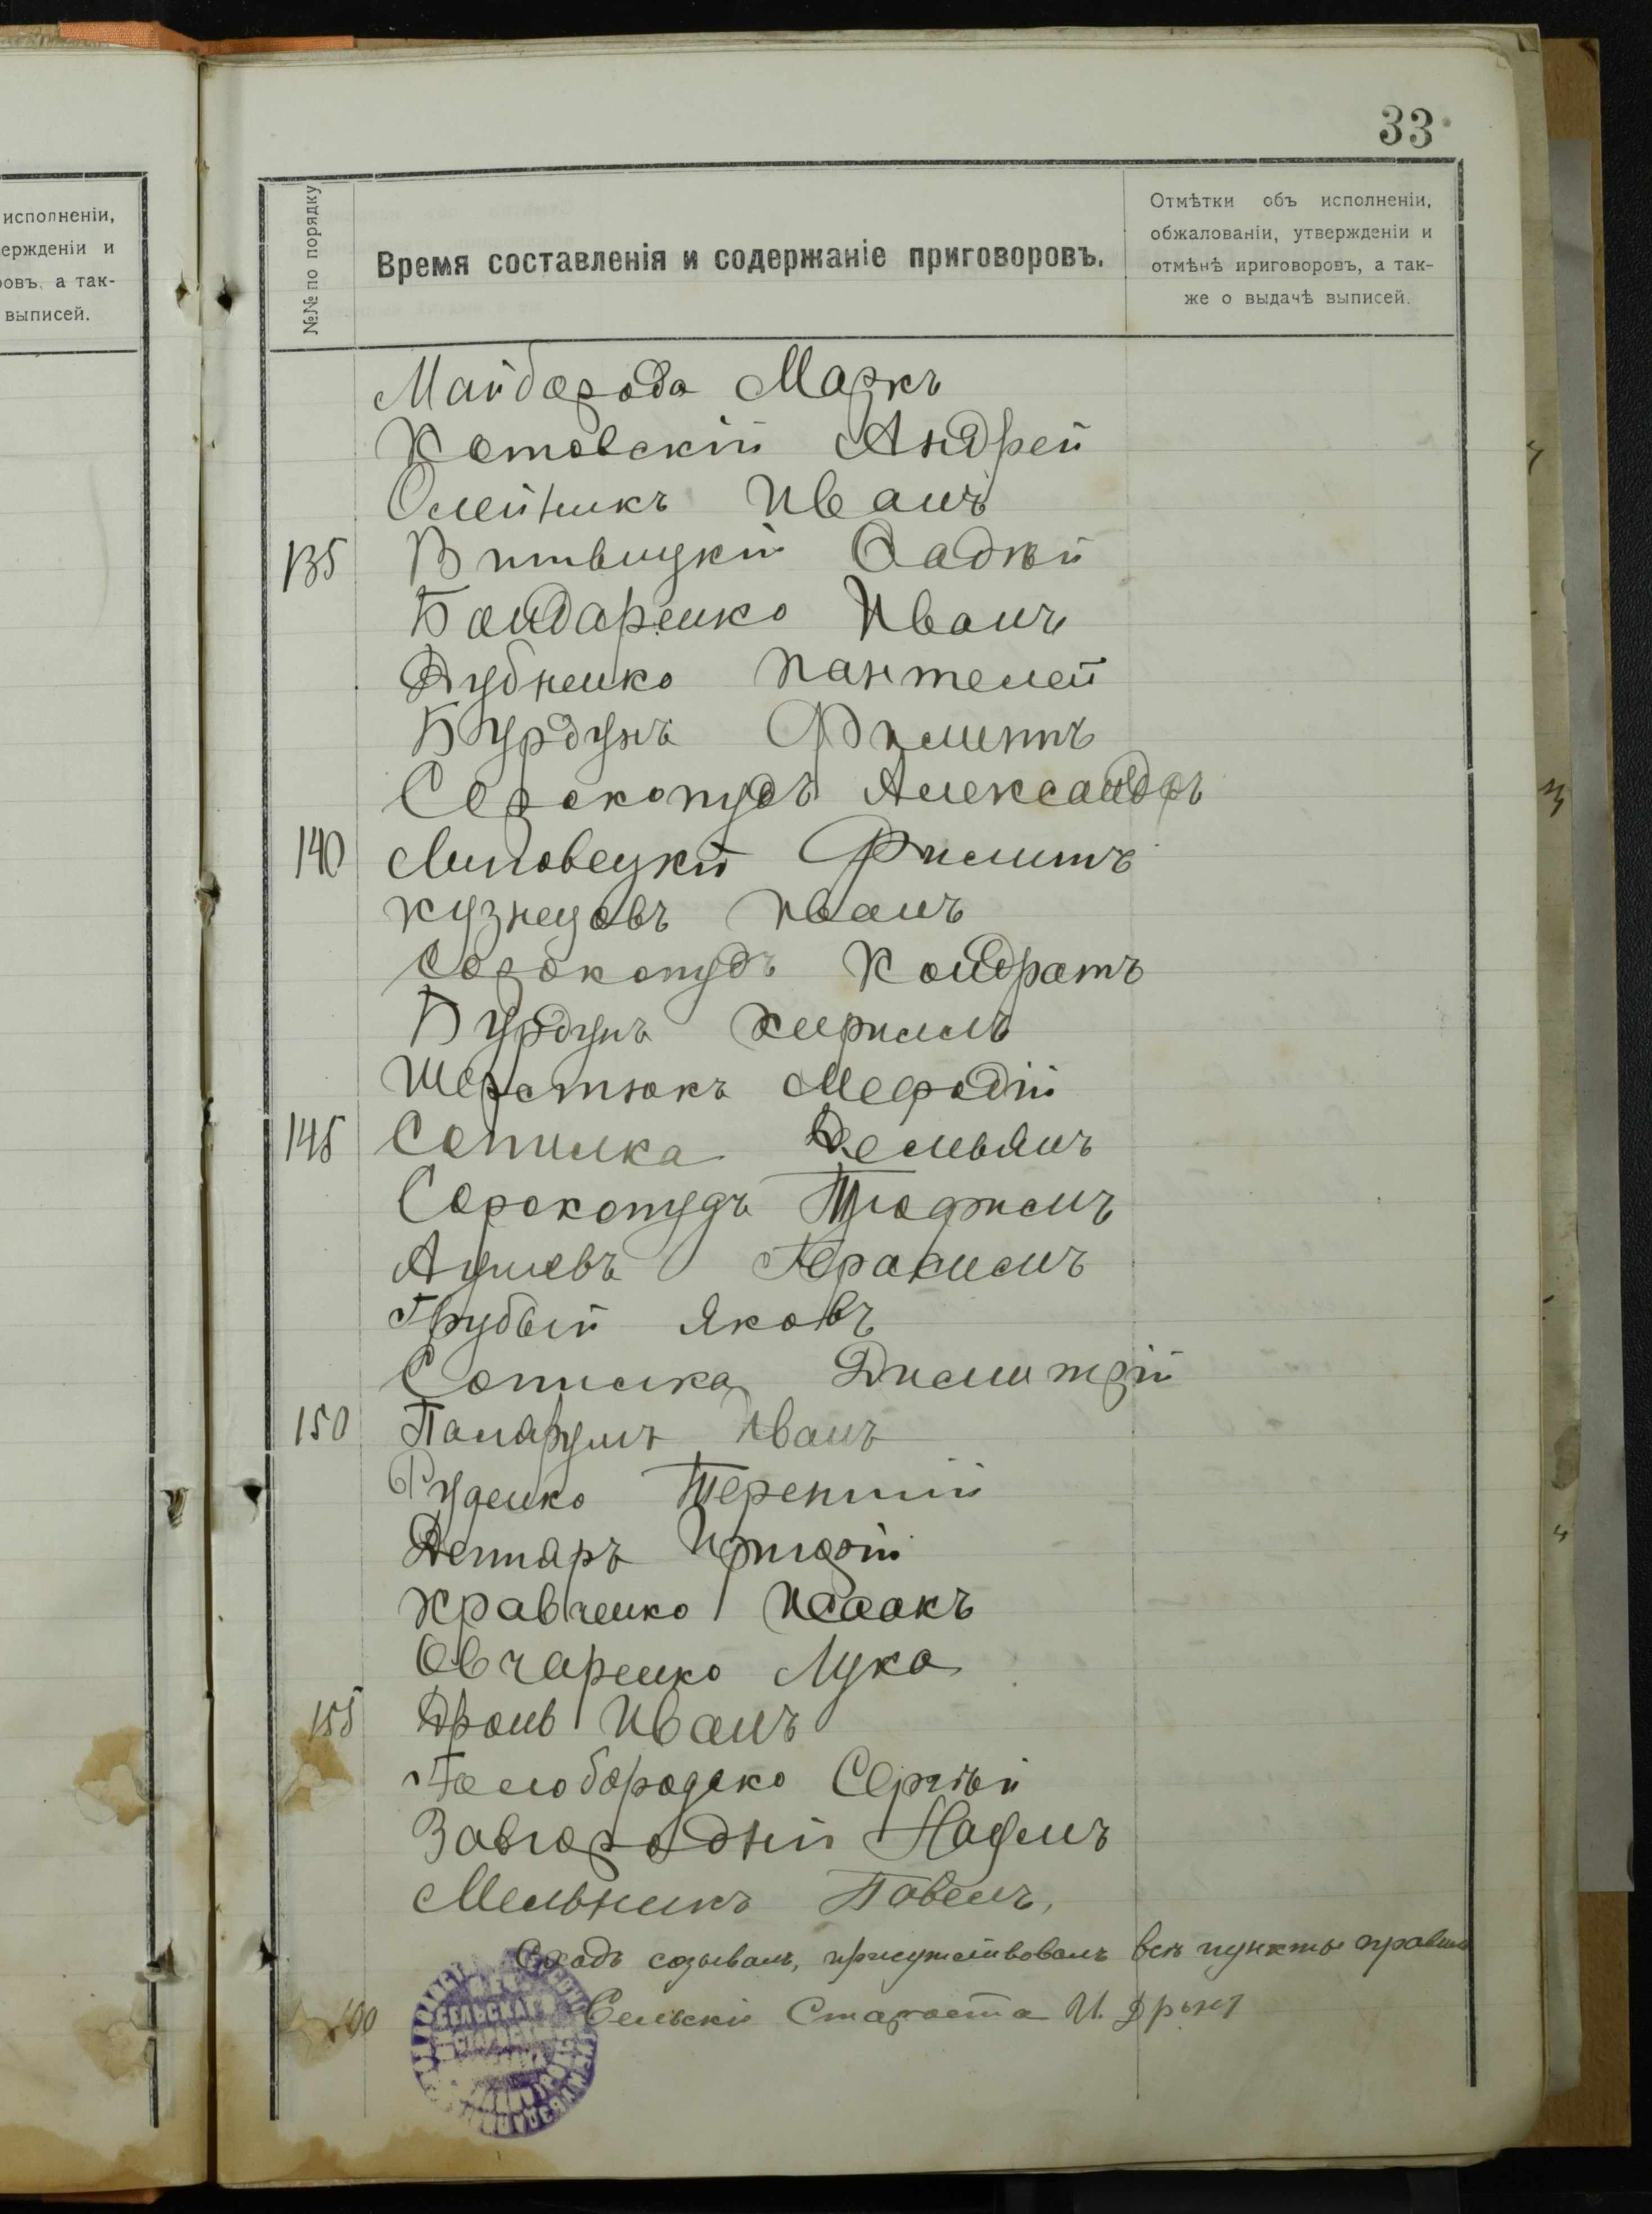 33
исполненіи,
ержденіи и
овъ, а так-
выписей.
№№ по порядку
Время составленія и содержаніе приговоровъ.
Отмѣтки объ исполненіи,
обжалованіи, утвержденіи и
отмѣнѣ приговоровъ, а так-
же о выдачѣ выписей.
Майборода Маркъ
Котовскій Андрей
Олейникъ Иванъ
135 Витвицкій
Бондаренко Иванъ
Дубненко Пантелей
Бурдунъ Филиппъ
Сорокопудъ Александръ
140 Липовецкій Филиппъ
Кузнецовъ Иванъ
Сорокопудъ Кондратъ
Бурдунъ Кирилъ
Шерстюкъ Мефодій
145 Сопилка Демьянъ
Сорокопудъ Трофимъ
Герасимъ
Грубый Яковъ
Сопилка Димитрій
150 Иванъ
Руденко Терентій
Дегтяръ
Кравченко Исаакъ
Овчаренко Лука
155 Дроль Иванъ
Голобородько Сергѣй
Завгородній Наумъ
Мельникъ Павелъ,
Сходъ созывалъ, присутствовалъ всѣ пункты
160 Сельскій Староста И.
СЕЛЬСКАГО